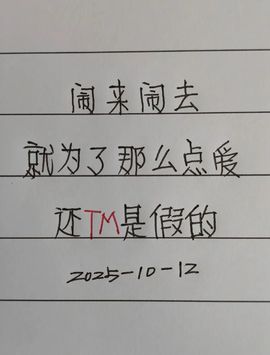 闹来闹去
就为了那么点爱
还TM是假的
2025-10-12